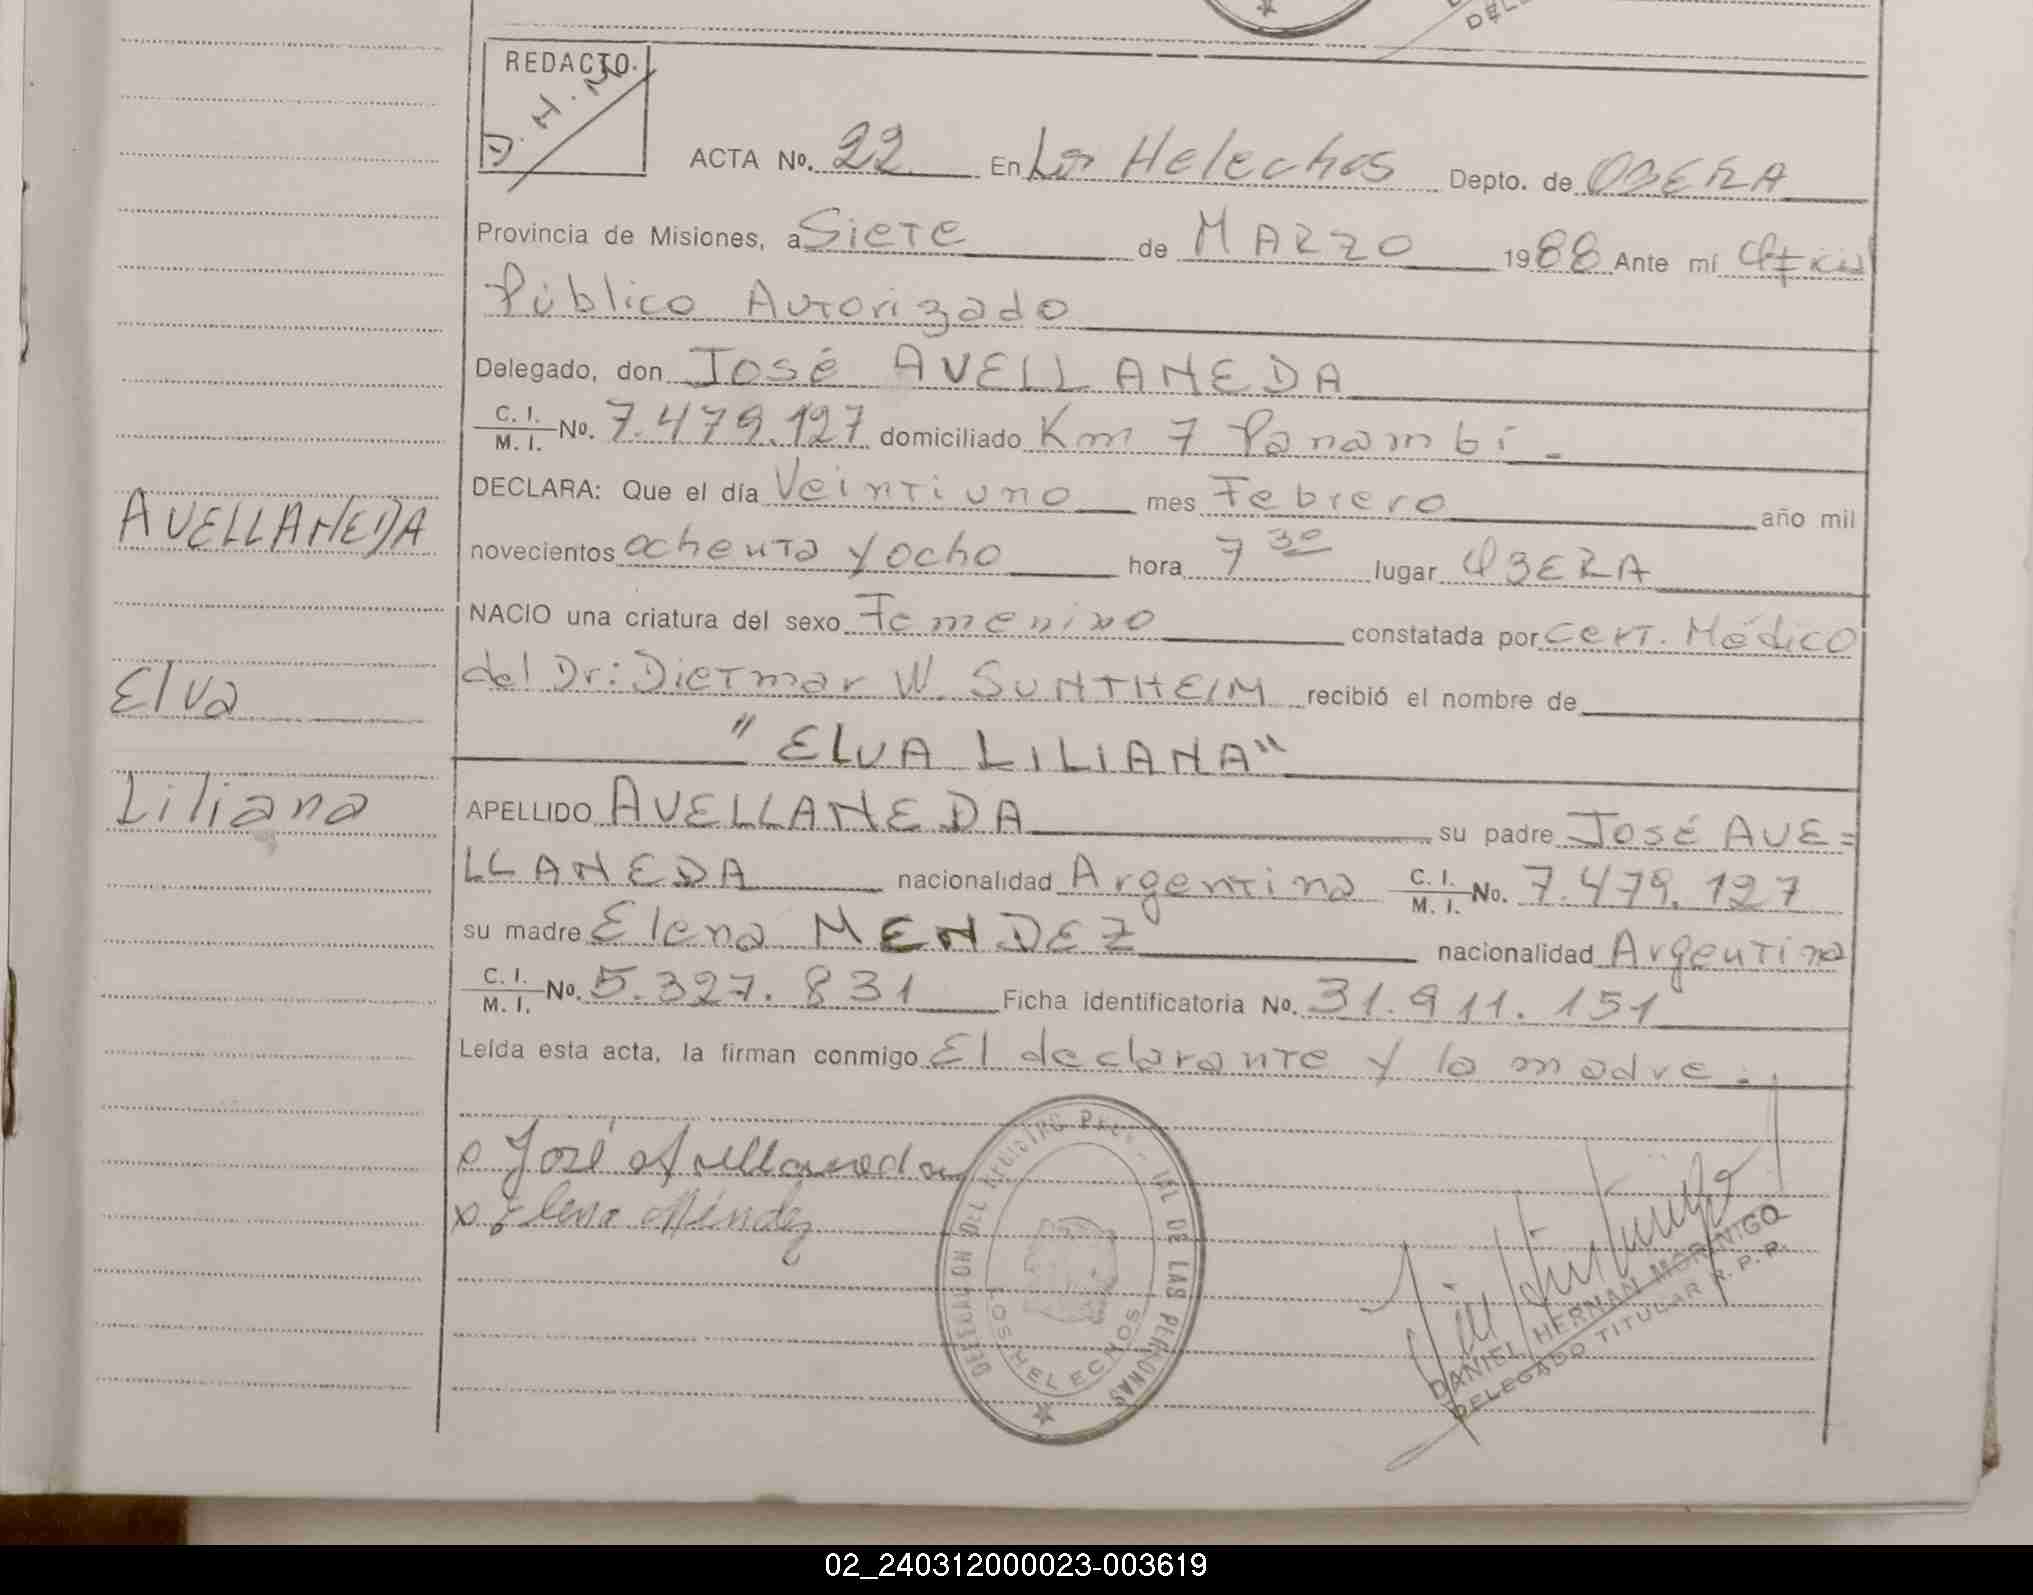 REDACTO.
D. H. M
ACTA No. 22 En Los Helechos Depto. de OBERA
Provincia de Misiones, a Siete de MARZO 1988 Ante mí Oficial
Público Autorizado
Delegado, don José AVELLANEDA
C. I. / M. I. No. 7.479.127 domiciliado Km 7 Panambí.
DECLARA: Que el día Veintiuno mes Febrero año mil
AVELLANEDA
novecientos ochenta y ocho hora 7 30 lugar OBERA
NACIO una criatura del sexo Femenino constatada por Cert. Médico
Elva
del Dr: Dietmar W. SUNTHEIM recibió el nombre de
"ELVA LILIANA"
Liliana
APELLIDO AVELLANEDA su padre José AVE=
LLANEDA nacionalidad Argentina C. I. / M. I. No. 7.479.127
su madre Elena MENDEZ nacionalidad Argentina
C. I. / M. I. No. 5.327.831 Ficha identificatoria No. 31.911.151
Leída esta acta, la firman conmigo El declarante y la madre.
x José Avellaneda
x Elena Méndez
DEL REGISTRO DE LAS PERSONAS
LOS HELECHOS
DANIEL HERNAN MORINIGO
DELEGADO TITULAR R. P. P.
02_240312000023-003619